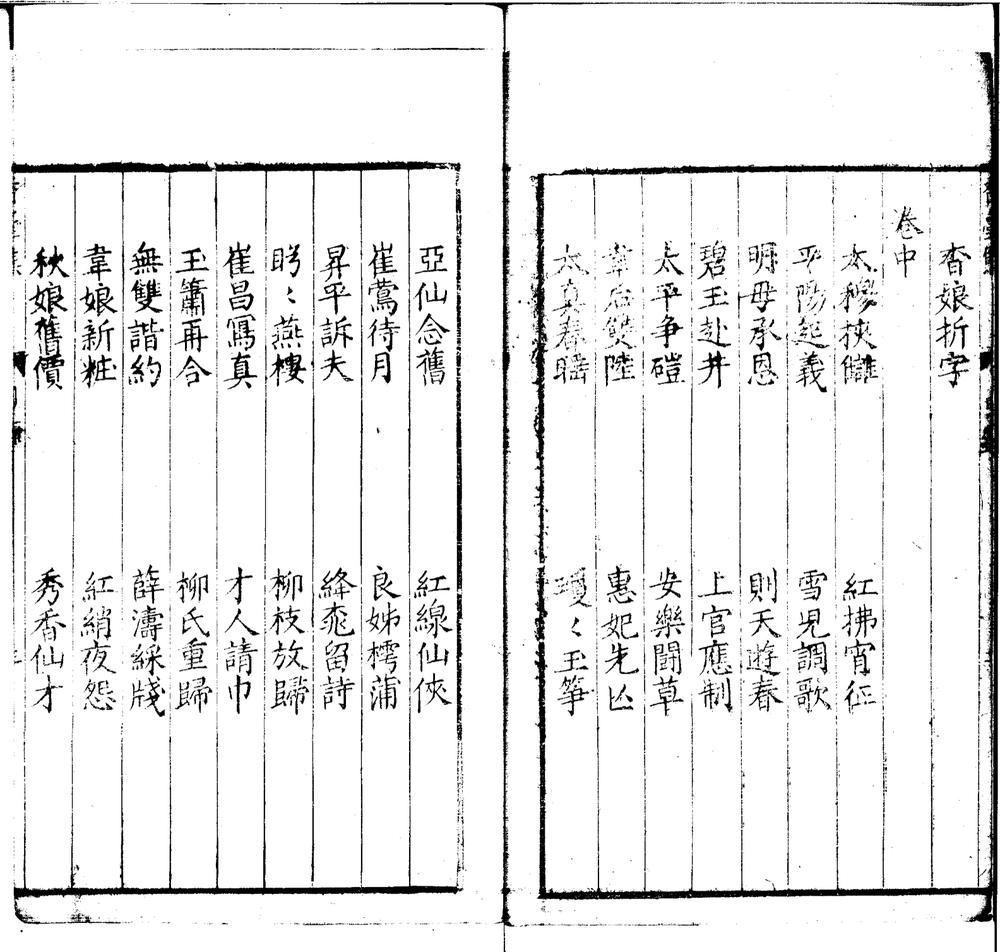 杳娘折字
卷中
太穆挾讎 紅拂宵征
平陽起義 雪児調歌
明母承恩 則天遊春
碧玉赴井 上官應制
太平争磑 安樂鬪草
韋后雙陸 惠妃先凶
太真春睡 瓊〻玉筝
亞仙念舊 紅線仙俠
崔鶯待月 良姊樗蒲
昇平訴夫 絳桃留詩
盻〻燕樓 柳枝放歸
崔昌寫真 才人請巾
玉簫再合 柳氏重歸
無雙諧約 薛濤綵牋
韋娘新粧 紅綃夜怨
秋娘舊價 秀香仙才